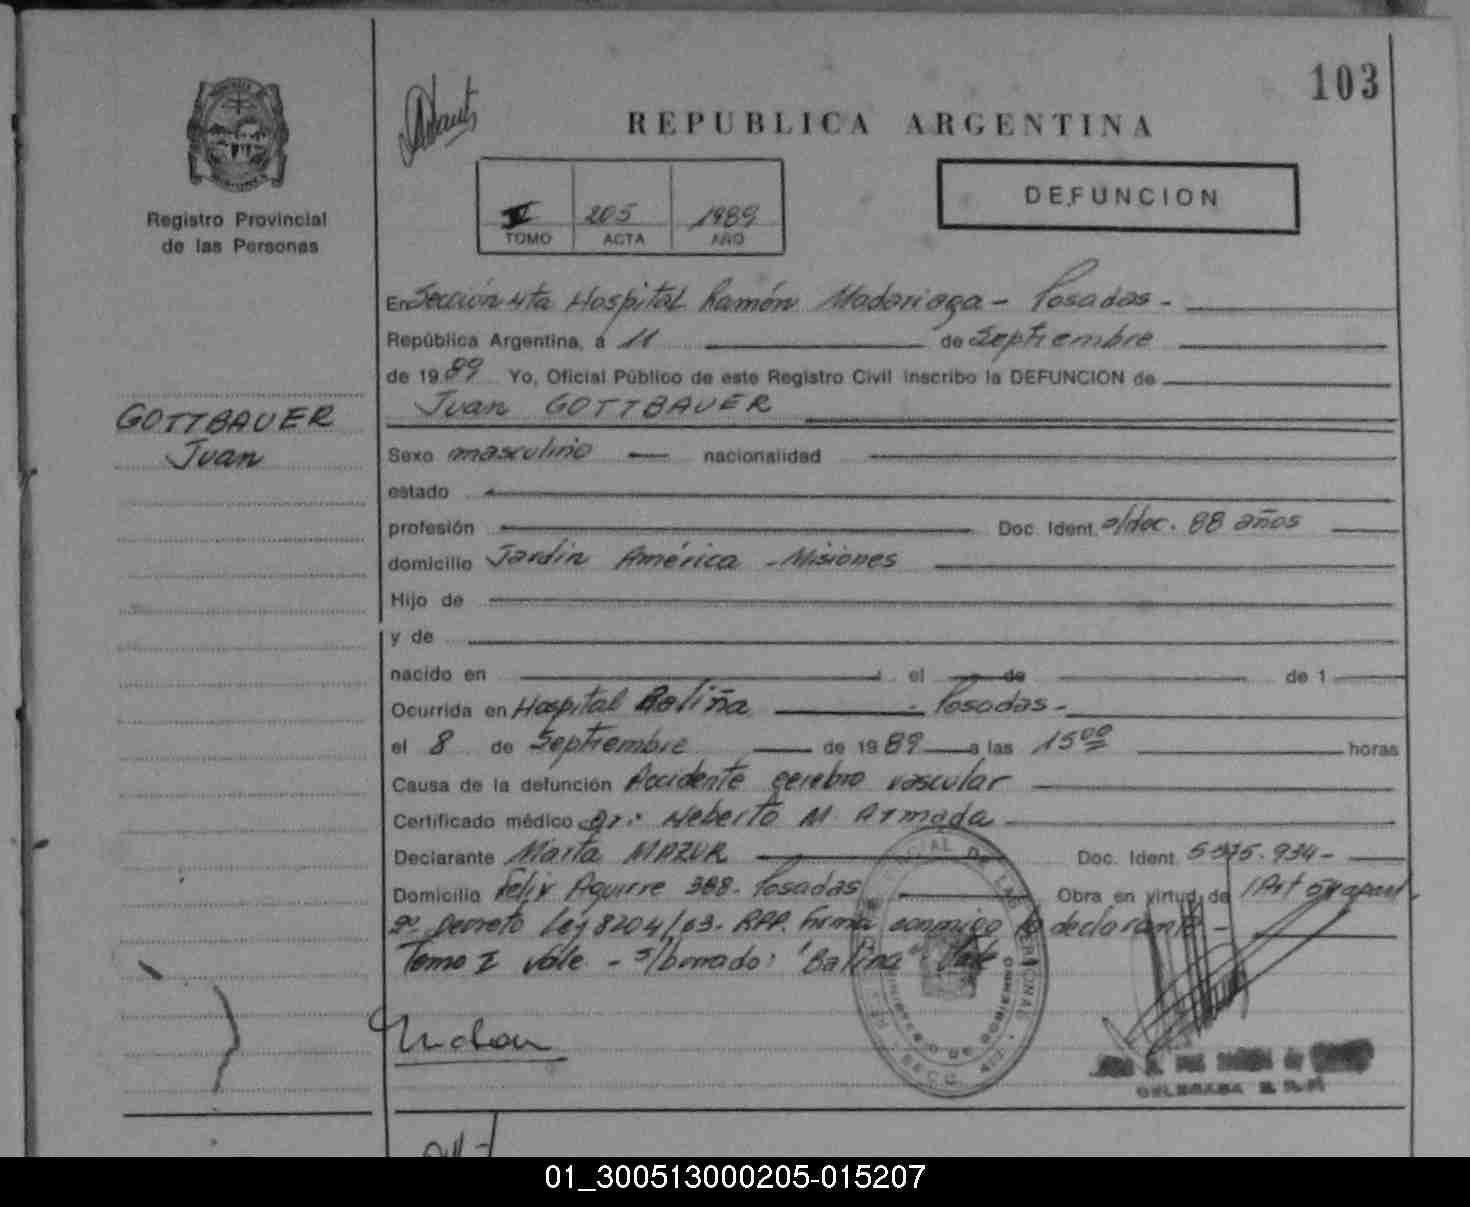 103
REPUBLICA ARGENTINA
Registro Provincial
de las Personas
205 1989
TOMO ACTA AÑO
DEFUNCION
En Sección 4ta Hospital Ramón Madariaga - Posadas -
República Argentina, a 11 de Septiembre
de 1989 Yo, Oficial Público de este Registro Civil inscribo la DEFUNCION de
Juan GOTTBAUER
GOTTBAUER
Juan
Sexo masculino nacionalidad
estado
profesión Doc. Ident. s/doc. 88 años
domicilio Jardín América - Misiones
Hijo de
y de
nacido en el de de 1
Ocurrida en Hospital Baliña - Posadas -
el 8 de Septiembre de 1989 a las 15 00 horas
Causa de la defunción Accidente cerebro vascular
Certificado médico Dr: Heberto M. Armada
Declarante Marta MAZUR Doc. Ident. 5.375.934 -
Domicilio Felix Aguirre 388 - Posadas Obra en virtud de Art
2º Decreto Ley 8204/63 - RPP. Firma conmigo la declarante -
Tomo I vale - s/borrado: "Baliña" Vale
DELEGADA
01_300513000205-015207